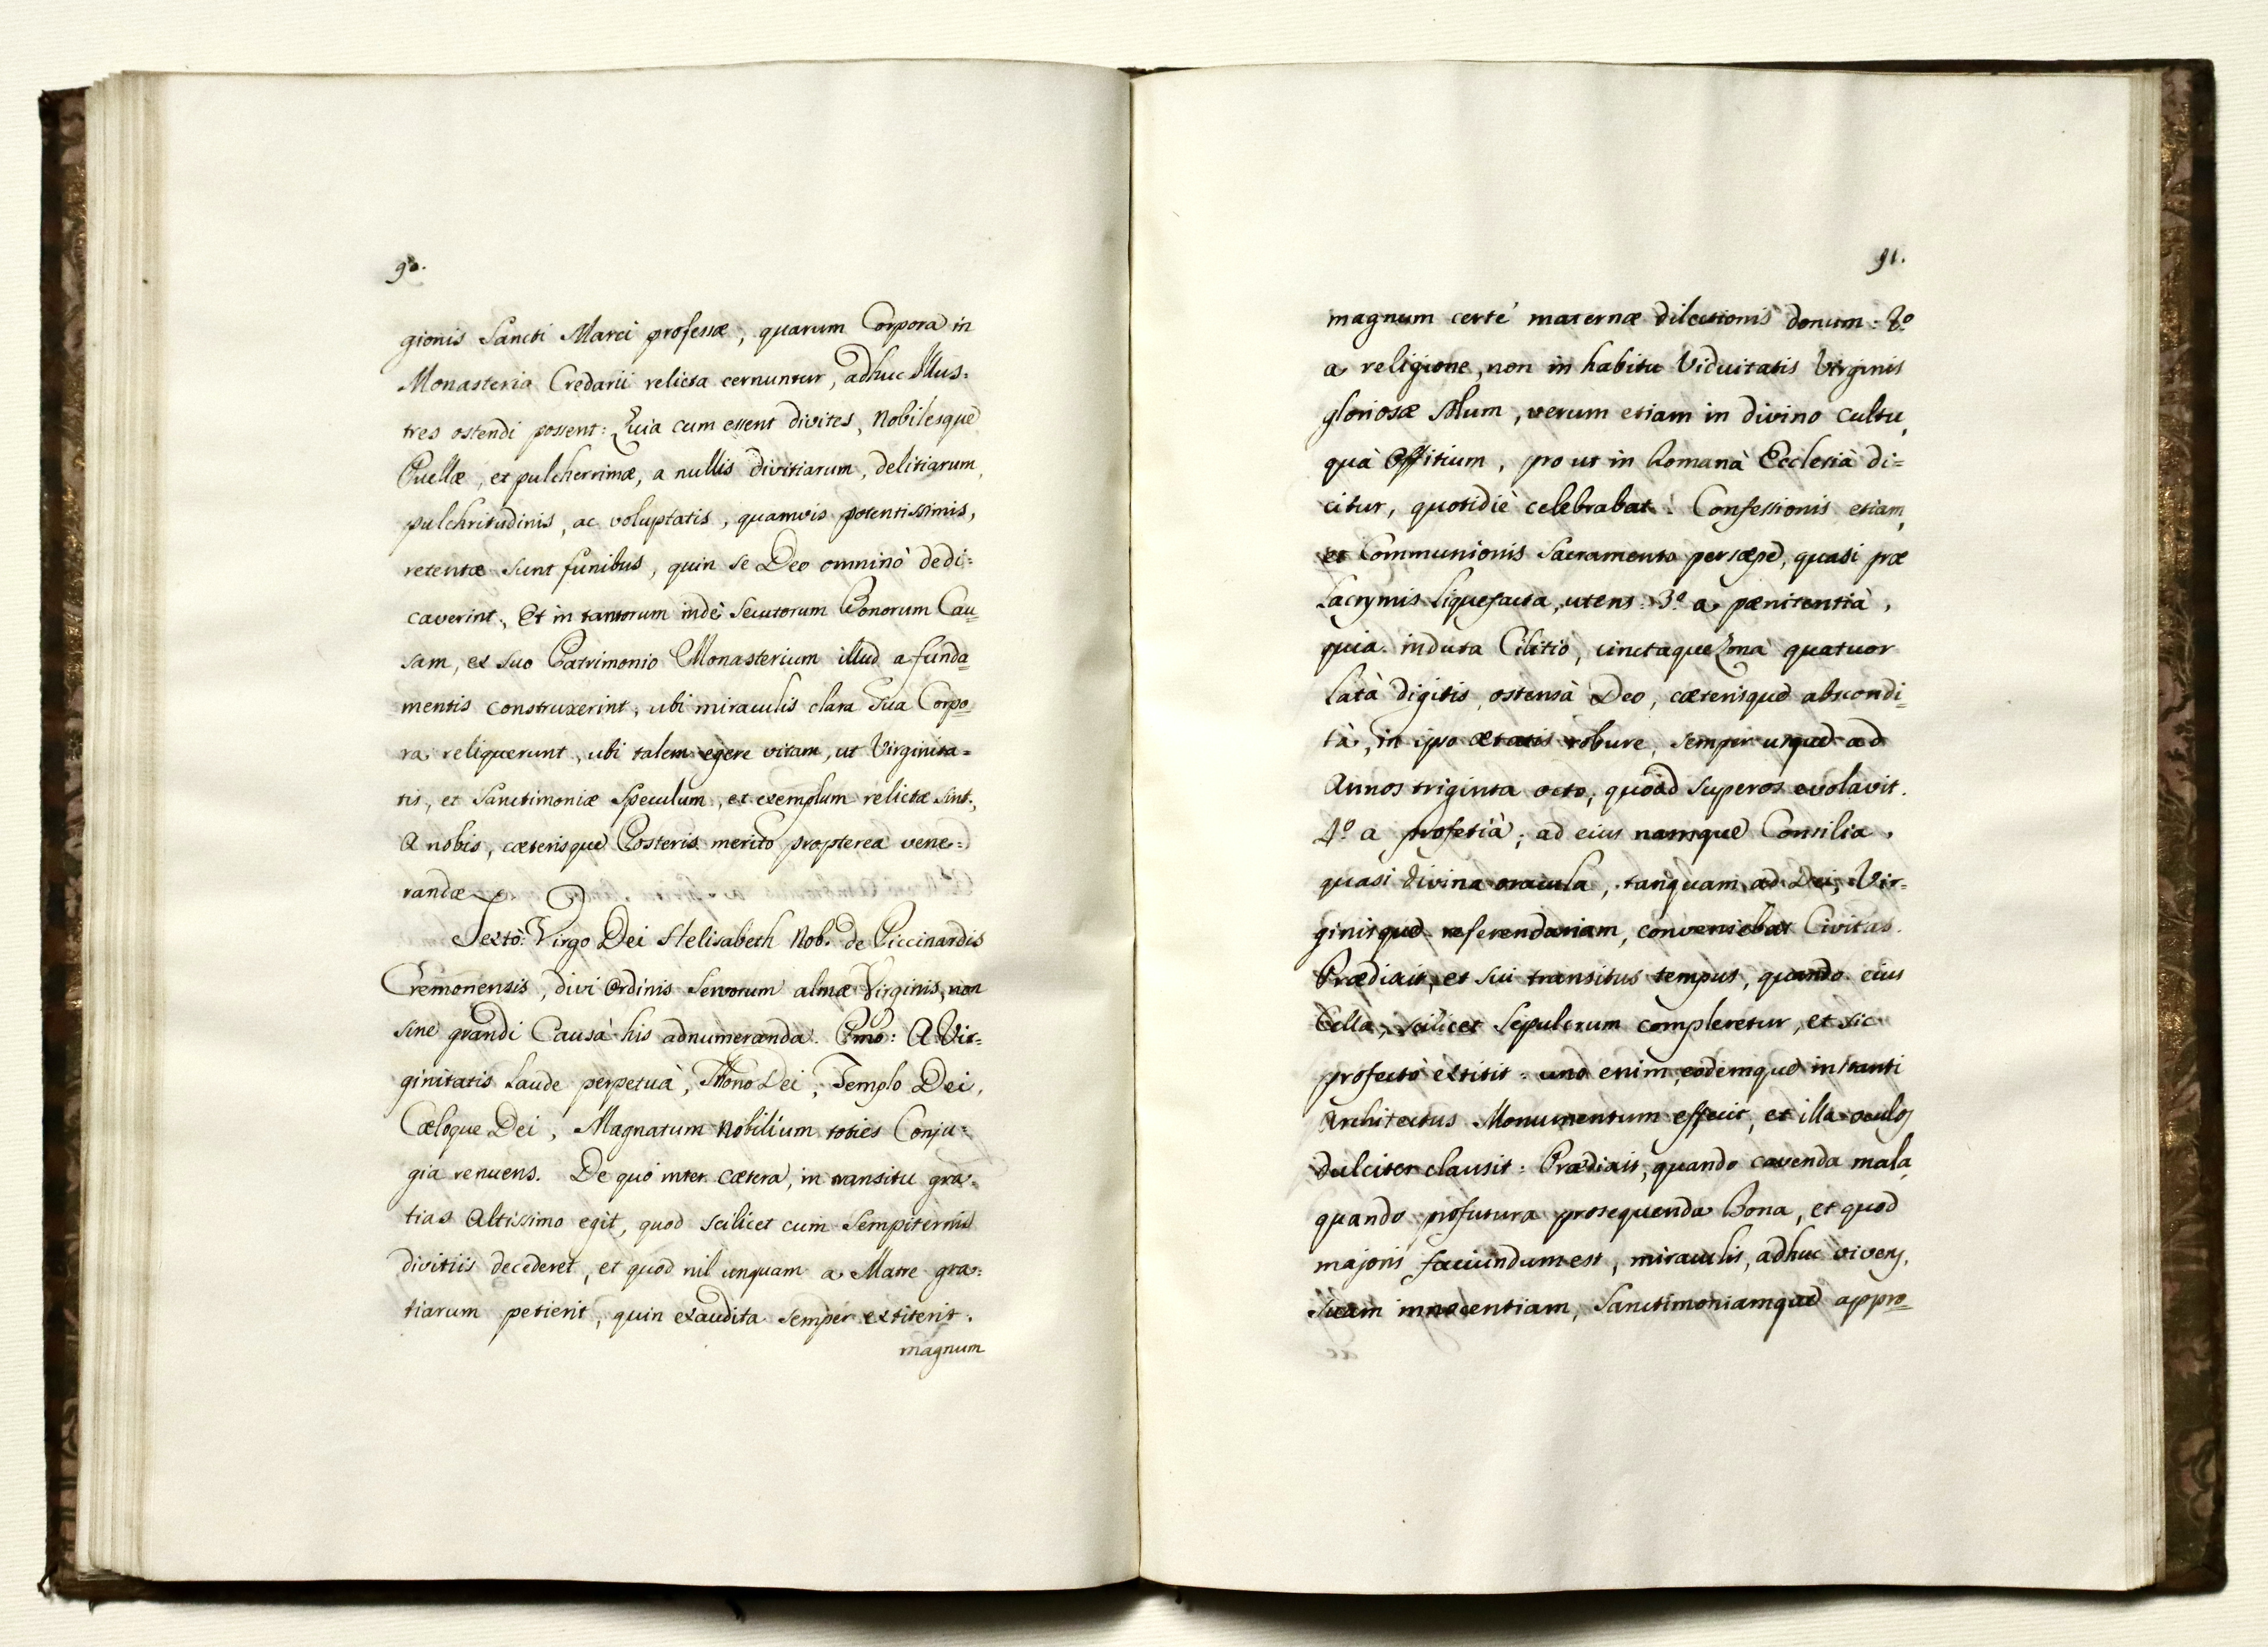 90.
gionis Sancti Marci professæ, quarum Corpora in
Monasterio Credarii relicta cernuntur, adhuc Illus:
tres ostendi possent: Quia cum essent divites, Nobilesque
Puellæ, et pulcherrimæ, a nullis divitiarum, delitiarum,
pulchritudinis, ac voluptatis, quamvis potentissimis,
retentæ sunt funibus, quin se Deo omninò dedi:
caverint, Et in tantorum indè secutorum Bonorum Cau=
sam, ex suo Patrimonio Monasterium illud a funda=
mentis construxerint, ubi miraculis clara sua Corpo=
ra reliquerunt, ubi talem egere vitam, ut Virginita=
tis, et Sanctimoniæ Speculum, et exemplum relictæ sint,
A nobis, cæterisque Posteris merito propterea vene=
randæ
Sextò: Virgo Dei Helisabeth Nob. de Piccinardis
Cremonensis, divi Ordinis Servorum almæ Virginis, non
sine grandi Causà his adnumeranda. Pmò: A Vir=
ginitatis Laude perpetuà, Thono Dei, Templo Dei,
Cæloque Dei, Magnatum Nobilium toties Conju=
gia renuens. De quo inter cætera, in transitu gra=
tias Altissimo egit, quod scilicet cum Sempiternis
divitiis decederet, et quod nil unquam a Matre gra=
tiarum petierit, quin exaudita semper extiterit.
magnum
91.
magnum certè maternæ dilectionis donum: 2º
a religione, non in habitu Viduitatis Virginis
gloriosæ solum, verum etiam in divino cultu,
quà Offitium, pro ut in Romanà Ecclesià di=
citur, quotidiè celebrabat: Confessionis etiam,
et Communionis Sacramento persæpè, quasi præ
Lacrymis liquefacta, utens: 3º a pænitentià,
quia induta Cilitio, cinctaque Zonà quatuor
latà digitis, ostensà Deo, cæterisque abscondi=
tà, in ipso ætatis robure, semper usque ad
Annos triginta octo, quoad superos evolavit.
4º a profetià; ad eius namque Consilia,
quasi divina oracula, tanquam ad Dei, Vir=
ginisque referendariam, conveniebat Civitas.
Prædixit, et sui transitus tempus, quando eius
Cella, scilicet Sepulcrum compleretur, et sic
profectò extitit: uno enim, eodemque instanti
Architectus Monumentum effecit, et illa oculos
dulciter clausit: Prædixit, quando cavenda mala,
quando profutura prosequenda Bona, et quod
majoris faciundum est, miraculis, adhuc vivens,
suam innocentiam, Sanctimoniamque appro=